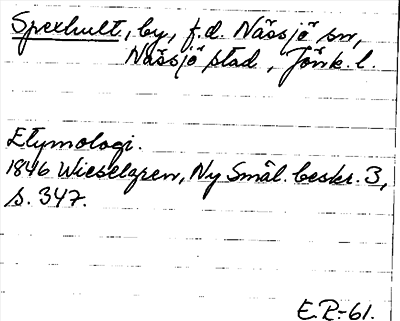 Spexhult, by, f.d. Nässjö sn,
Nässjö stad, Jönk. l.
Etymologi.
1846 Wieselgren, Ny Smål. beskr. 3,
s. 347.
E.P.-61.